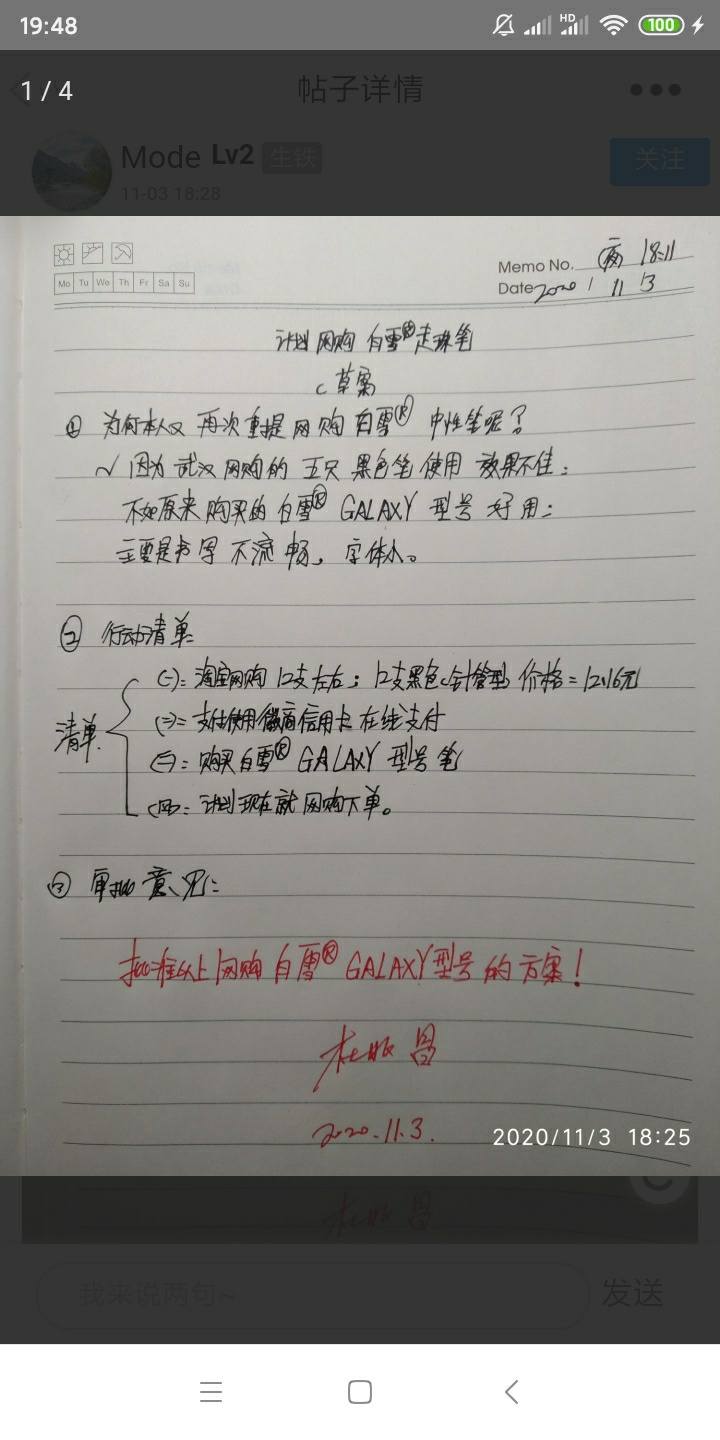 19:48
HD
100
1 / 4
帖子详情
Mode Lv2 生铁
11-03 18:28
关注
Mo Tu We Th Fr Sa Su
Memo No. 18:11
Date 2020 / 11 3
计划网购白雪®走珠笔
(草案
① 为何本人又再次重提网购白雪® 中性笔呢？
✓ 因为武汉网购的五只黑色笔使用效果不佳；
不如原来购买的白雪® GALAXY 型号好用；
主要是书写不流畅，字体小。
② 行动清单
清单
(一)：淘宝网购12支左右；12支黑色(针管型) 价格=12.16元
(二)：支付使用徽商信用卡在线支付
(三)：购买白雪® GALAXY 型号笔
(四)：计划现在就网购下单。
③ 审批意见：
批准以上网购白雪® GALAXY型号的方案！
昌
2020.11.3.
2020/11/3 18:25
我来说两句~
发送